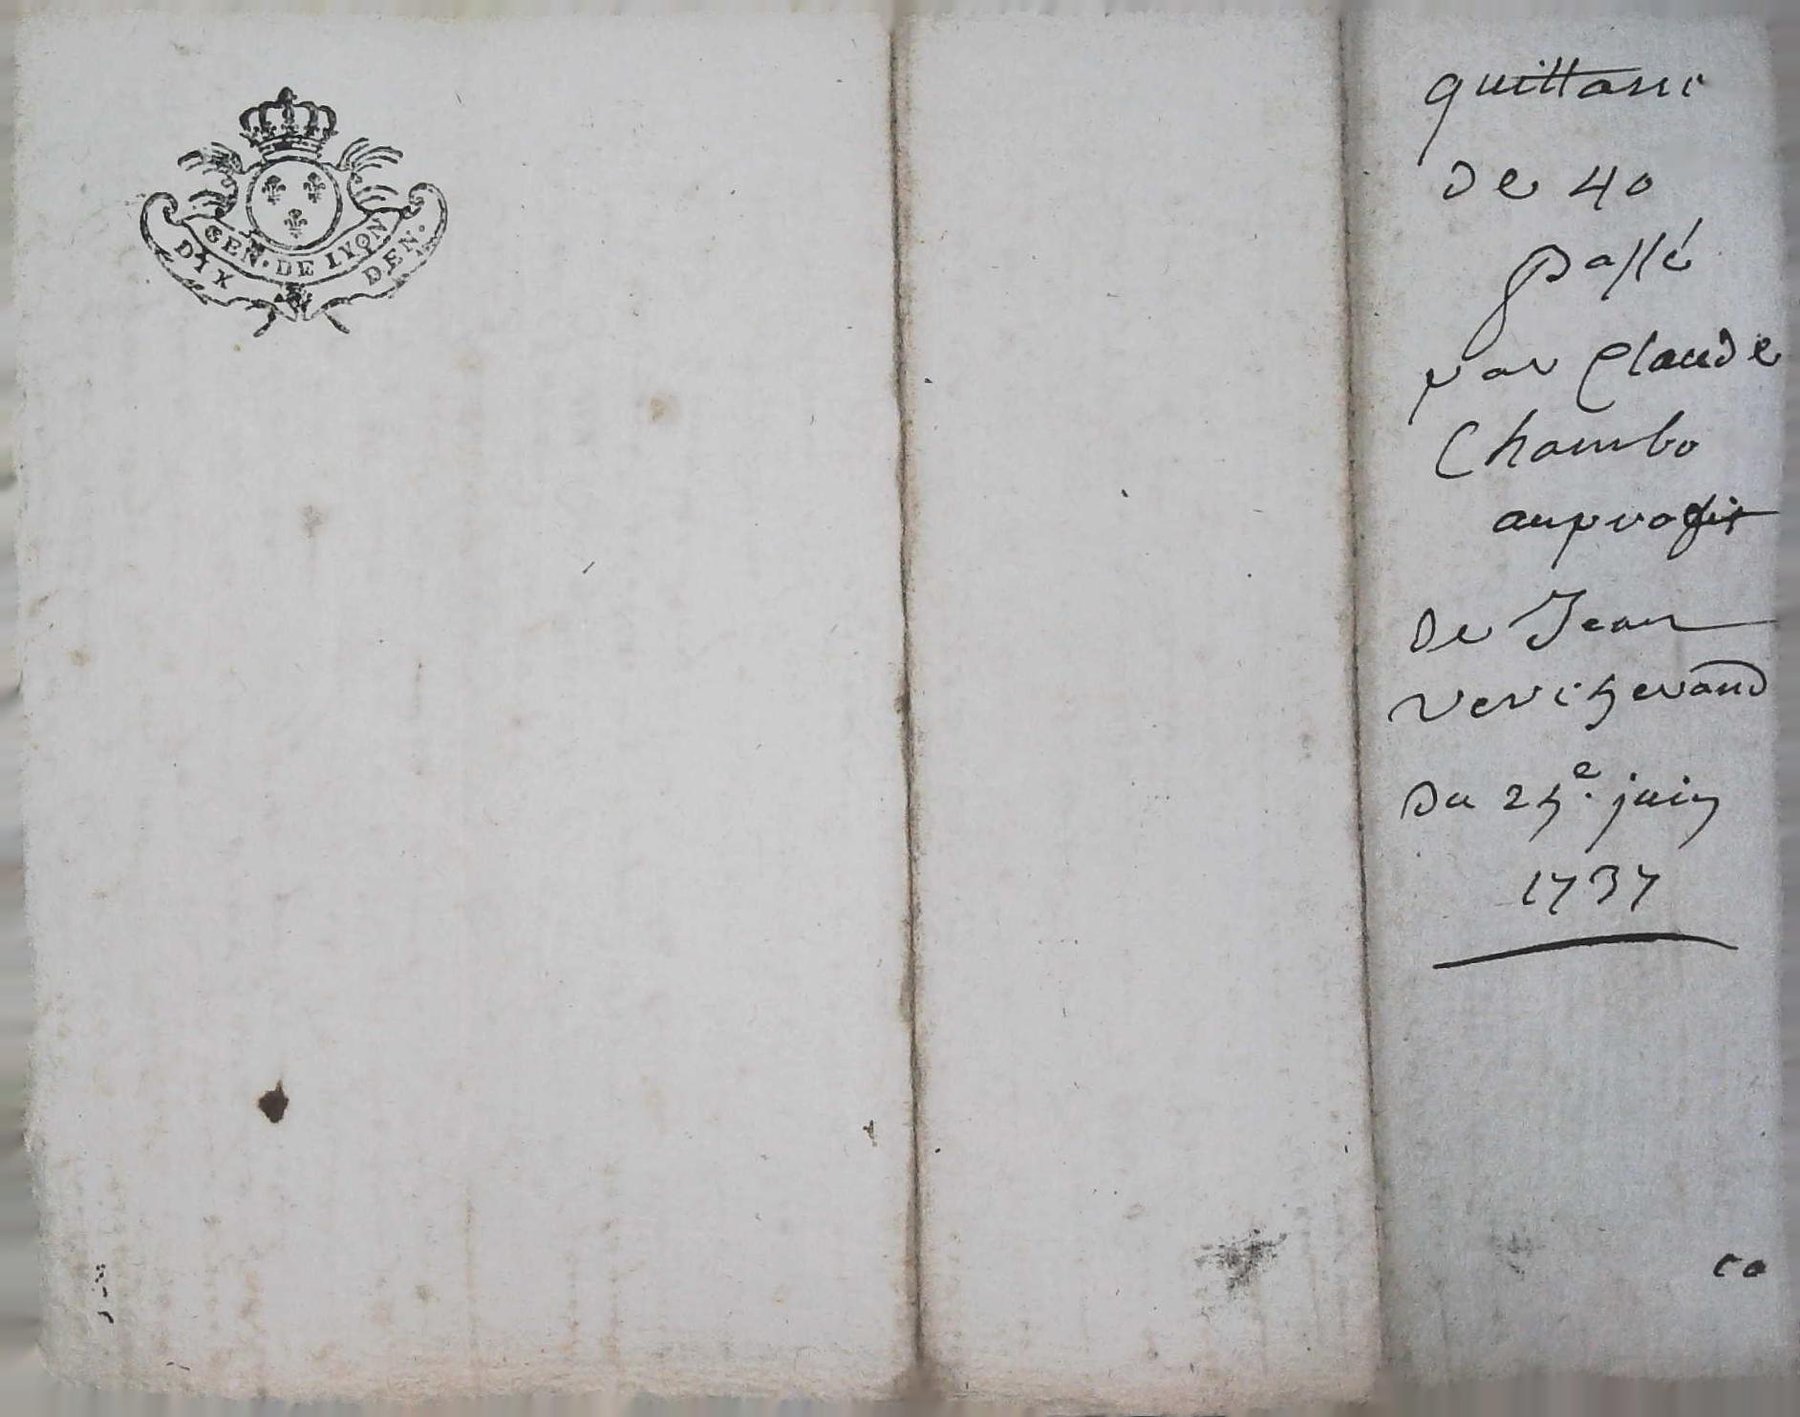 GEN. DE LYON
DIX DEN.
quittanc
de 40
passé
par Claude
Chambo
au profit
de Jean
Vercherand
du 25e. juin
1737